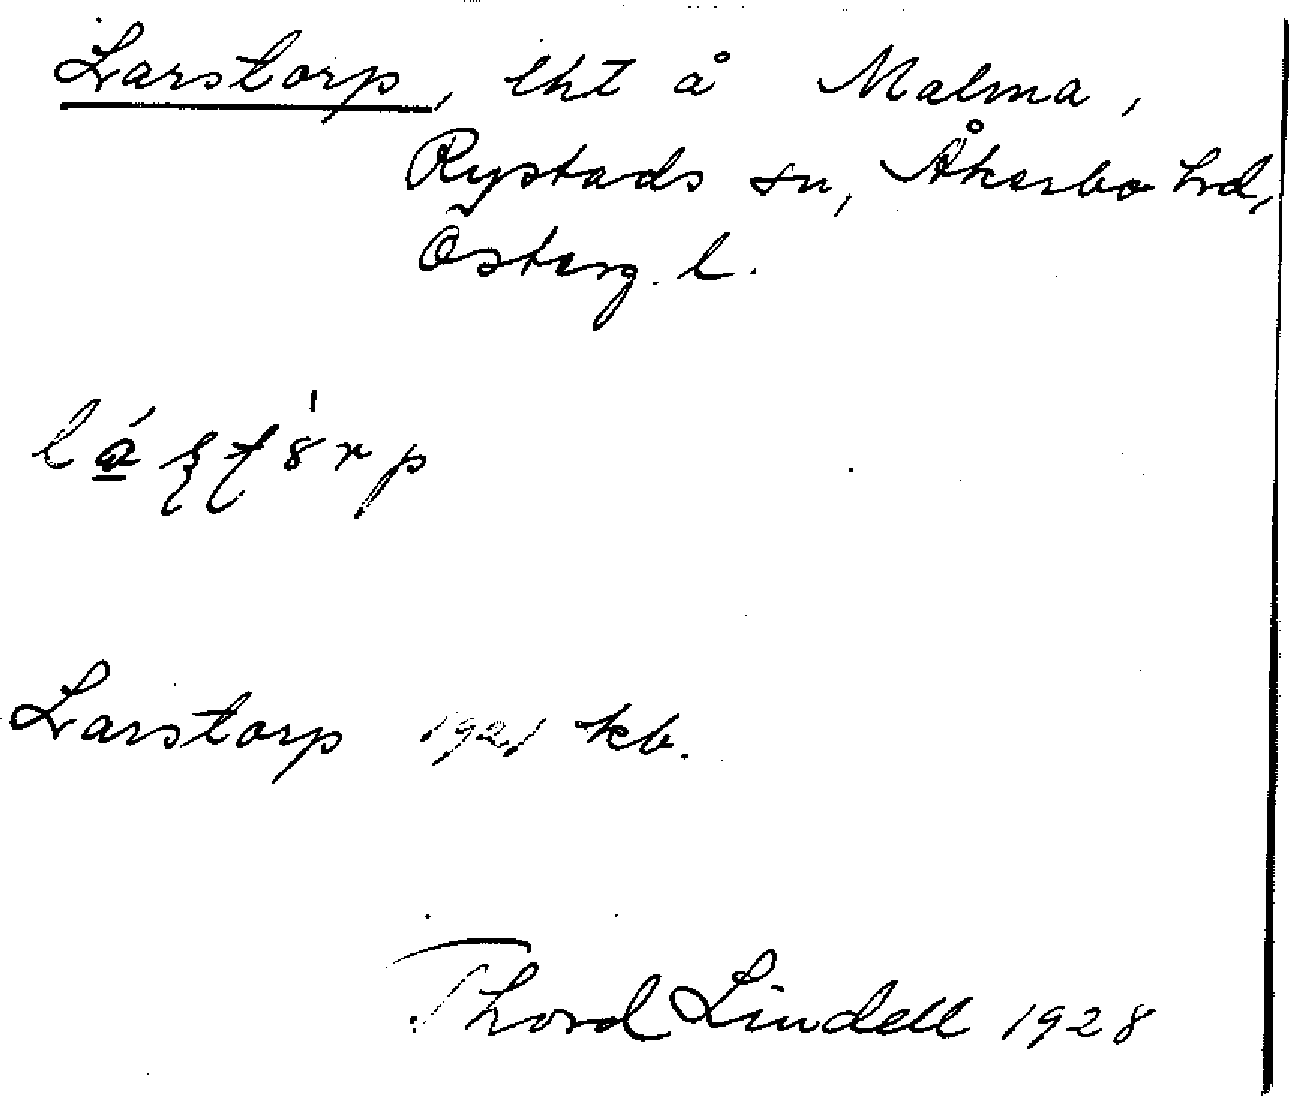 Larstorp, lht å Malma,
Rystads sn, Åkerbo hd,
Österg. l.
Larstorp 1921 kb.
Thord Lindell 1928